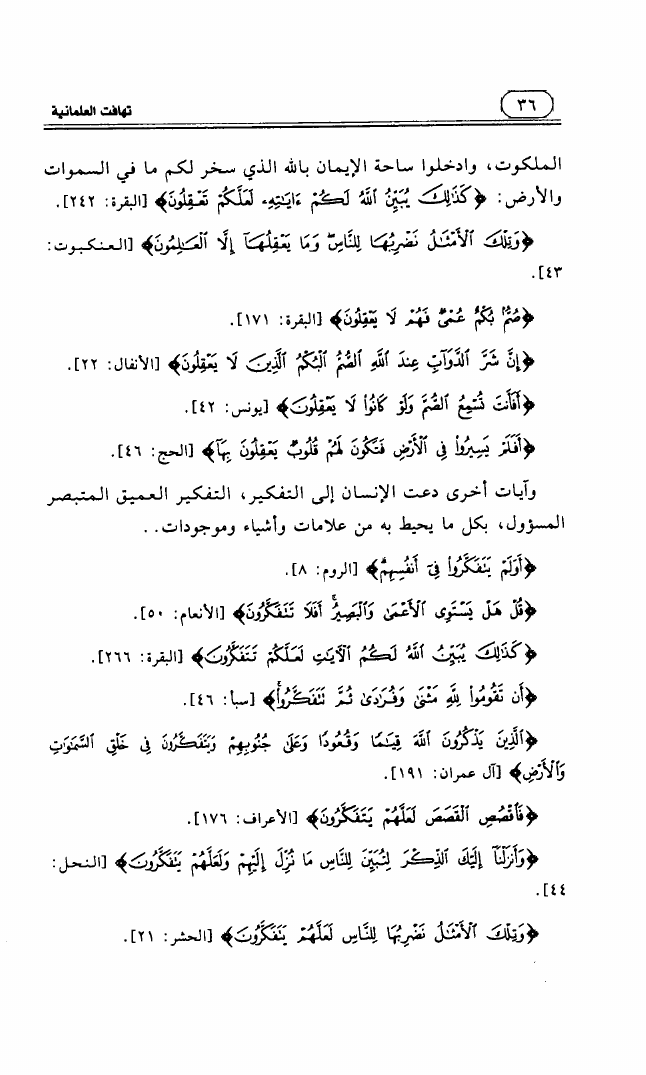 ٣٦
تهافت العلمانية
الملكوت، وادخلوا ساحة الإيمان بالله الذي سخر لكم ما في السموات
والأرض: ﴿كَذَٰلِكَ يُبَيِّنُ ٱللَّهُ لَكُمْ ءَايَٰتِهِۦ لَعَلَّكُمْ تَعْقِلُونَ﴾ [البقرة: ٢٤٢].
﴿وَتِلْكَ ٱلْأَمْثَٰلُ نَضْرِبُهَا لِلنَّاسِ وَمَا يَعْقِلُهَآ إِلَّا ٱلْعَٰلِمُونَ﴾ [العنكبوت:
٤٣].
﴿صُمٌّۢ بُكْمٌ عُمْىٌ فَهُمْ لَا يَعْقِلُونَ﴾ [البقرة: ١٧١].
﴿إِنَّ شَرَّ ٱلدَّوَآبِّ عِندَ ٱللَّهِ ٱلصُّمُّ ٱلْبُكْمُ ٱلَّذِينَ لَا يَعْقِلُونَ﴾ [الأنفال: ٢٢].
﴿أَفَأَنتَ تُسْمِعُ ٱلصُّمَّ وَلَوْ كَانُوا۟ لَا يَعْقِلُونَ﴾ [يونس: ٤٢].
﴿أَفَلَمْ يَسِيرُوا۟ فِى ٱلْأَرْضِ فَتَكُونَ لَهُمْ قُلُوبٌ يَعْقِلُونَ بِهَآ﴾ [الحج: ٤٦].
وآيات أخرى دعت الإنسان إلى التفكير، التفكير العميق المتبصر
المسؤول، بكل ما يحيط به من علامات وأشياء وموجودات..
﴿أَوَلَمْ يَتَفَكَّرُوا۟ فِىٓ أَنفُسِهِم﴾ [الروم: ٨].
﴿قُلْ هَلْ يَسْتَوِى ٱلْأَعْمَىٰ وَٱلْبَصِيرُ ۚ أَفَلَا تَتَفَكَّرُونَ﴾ [الأنعام: ٥٠].
﴿كَذَٰلِكَ يُبَيِّنُ ٱللَّهُ لَكُمُ ٱلْءَايَٰتِ لَعَلَّكُمْ تَتَفَكَّرُونَ﴾ [البقرة: ٢٦٦].
﴿أَن تَقُومُوا۟ لِلَّهِ مَثْنَىٰ وَفُرَٰدَىٰ ثُمَّ تَتَفَكَّرُوا۟ ۚ﴾ [سبأ: ٤٦].
﴿ٱلَّذِينَ يَذْكُرُونَ ٱللَّهَ قِيَٰمًا وَقُعُودًا وَعَلَىٰ جُنُوبِهِمْ وَيَتَفَكَّرُونَ فِى خَلْقِ ٱلسَّمَٰوَٰتِ
وَٱلْأَرْضِ﴾ [آل عمران: ١٩١].
﴿فَٱقْصُصِ ٱلْقَصَصَ لَعَلَّهُمْ يَتَفَكَّرُونَ﴾ [الأعراف: ١٧٦].
﴿وَأَنزَلْنَآ إِلَيْكَ ٱلذِّكْرَ لِتُبَيِّنَ لِلنَّاسِ مَا نُزِّلَ إِلَيْهِمْ وَلَعَلَّهُمْ يَتَفَكَّرُونَ﴾ [النحل:
٤٤].
﴿وَتِلْكَ ٱلْأَمْثَٰلُ نَضْرِبُهَا لِلنَّاسِ لَعَلَّهُمْ يَتَفَكَّرُونَ﴾ [الحشر: ٢١].